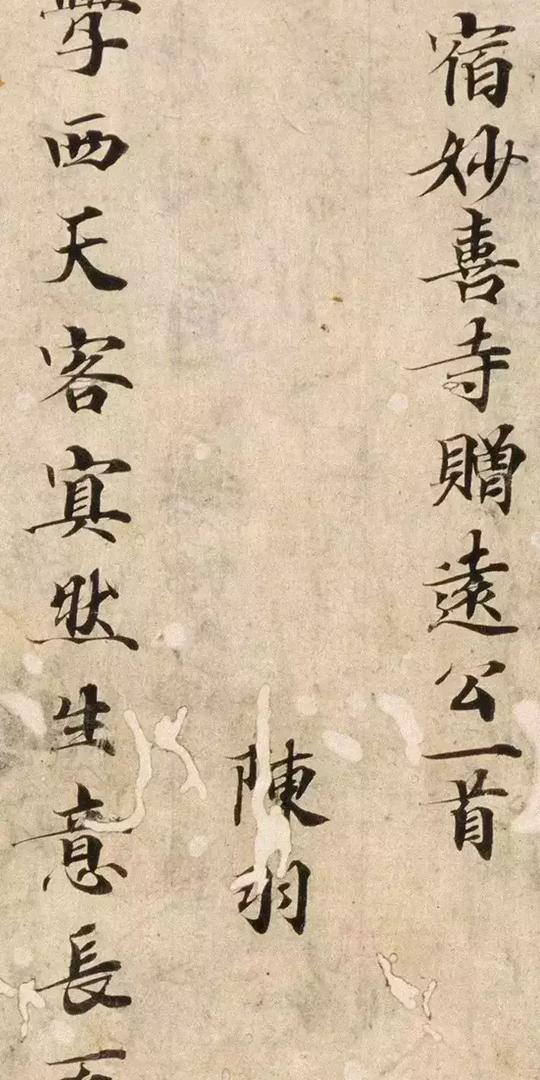 宿妙喜寺贈遠公一首
陳羽
西天客寘然生意長